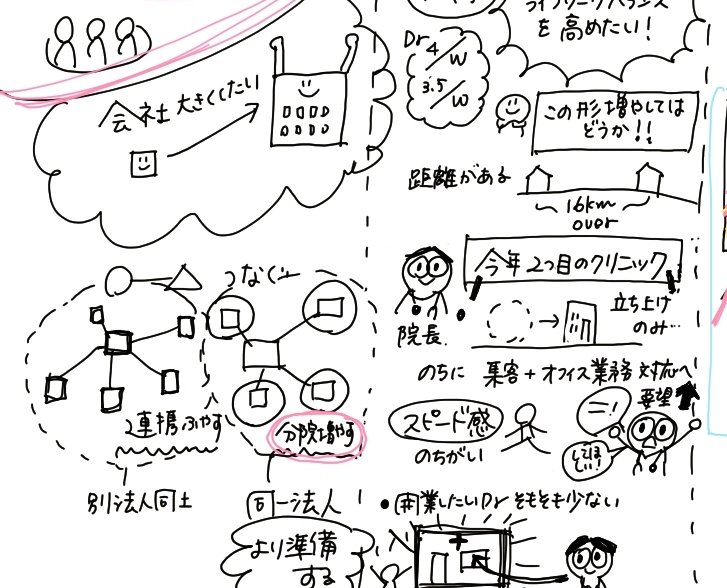 会社大きくしたい
つなぐ
連携ふやす
分院増やす
別法人同士
同一法人
より準備
する
ライフワークバランス
を高めたい!
Dr
4/w
3.5/w
この形増やしては
どうか!!
距離がある
16km
over
今年2つ目のクリニック
院長
立ち上げ
のみ…
のちに 集客+オフィス業務対応へ
要望
スピード感
のちがい
ニー!
してほしい!
・開業したいDrそもそも少ない